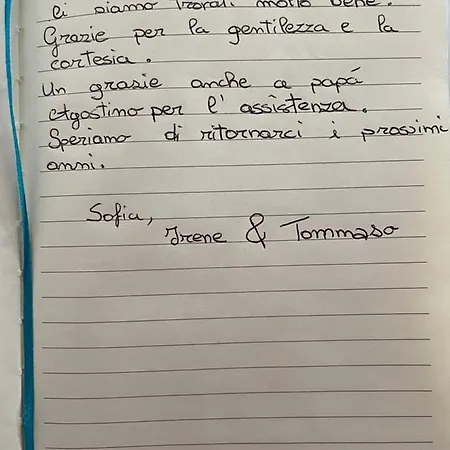 ci siamo trovati molto bene.
Grazie per la gentilezza e la
cortesia.
Un grazie anche a papá
Agostino per l'assistenza.
Speriamo di ritornarci i prossimi
anni.
Sofia,
Irene & Tommaso